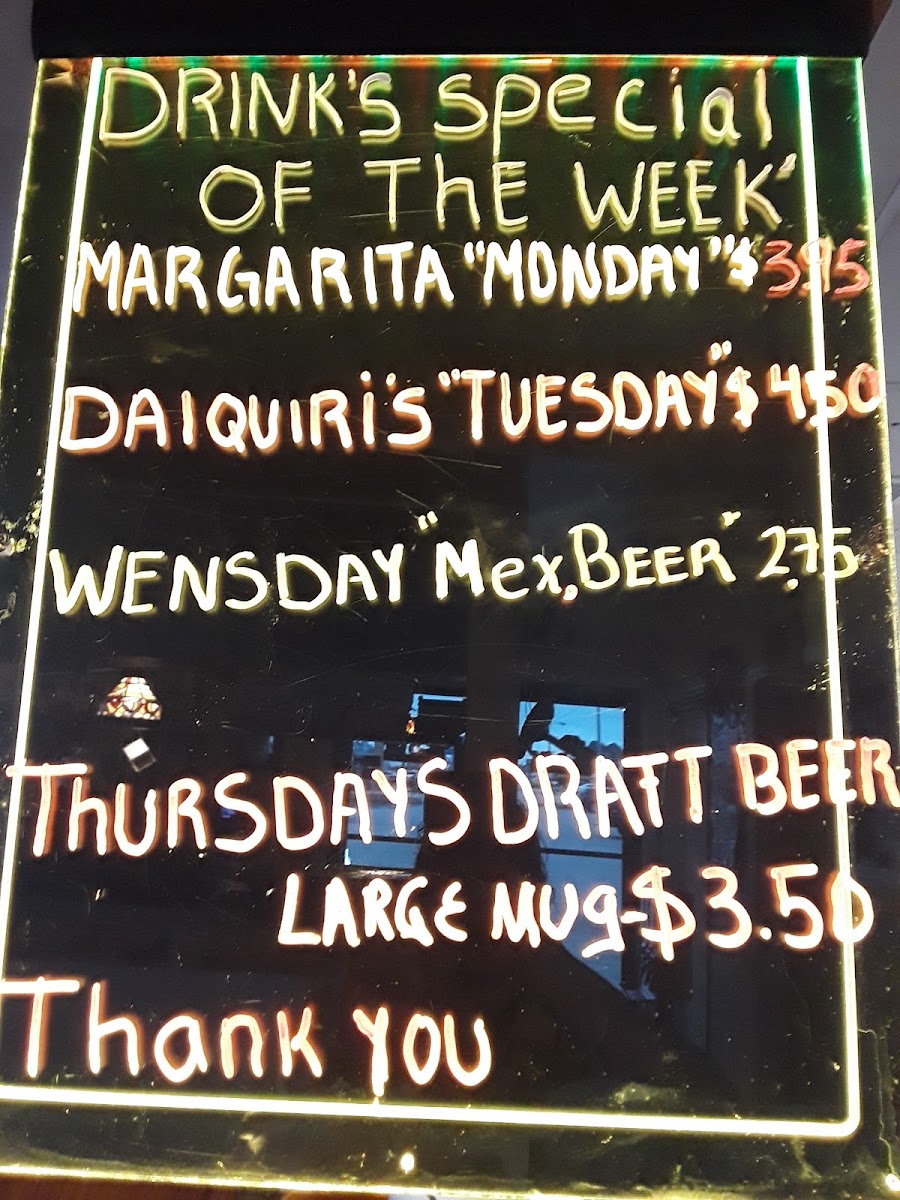 DRINK'S special
OF ThE WEEK"
MARGARITA "MONDAY" $ 3.95
DAIQUIRi's "TUESDAY" $ 4,50
WENSDAY "Mex, BEER" 2,75
ThURSDAYS DRATT BEER
LARGE MUg-$3.50
Thank YOU